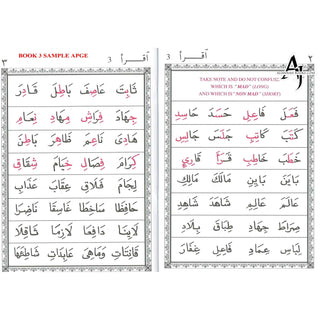 ٣
BOOK 3 SAMPLE APGE
3 اقرأ
ثَابِتَ عَاصِفَ بَاطِلَ قَادِرَ
جِهَادَ فِرَاشَ مِهَادِ نِعَامِ
هَادِيَ نَاعِمَ ظَاهِرَ بَاطِنَ
كِرَامَ فِصَالِ خِيَامَ شِقَاقِ
لِجَامَ فَلَاقِ عِقَابَ عَذَابَ
حَافِظًا سَاخِطًا غَاسِقًا نَاضِرًا
لَاِيْنَا دَافِعًا لَازِمًا شَاقِلًا
قَانِتَاتٍ وَمَاهِيَ عَابِدَاتٍ شَاطِئِهَا
3 اقرأ
٢
TAKE NOTE AND DO NOT CONFUSE;
WHICH IS "MAD" (LONG)
AND WHICH IS "NON MAD" (SHORT).
فَعَلَ فَاعِلِ حَسَدَ حَاسِدِ
كَتَبَ كَاتِبِ جَلَسَ جَالِسِ
خَطَبَ خَاطِبِ قَرَأَ قَارِئِ
بَايَنَ بَايَنَ مَالَكَ مَالِكِ
شَاهَدَ شَاهِدَ
صِرَاطَ جِهَادَ طِبَاقَ بِلَادِ
لِبَاسِ عِمَادِ فَاعِلِ غِفَارَ